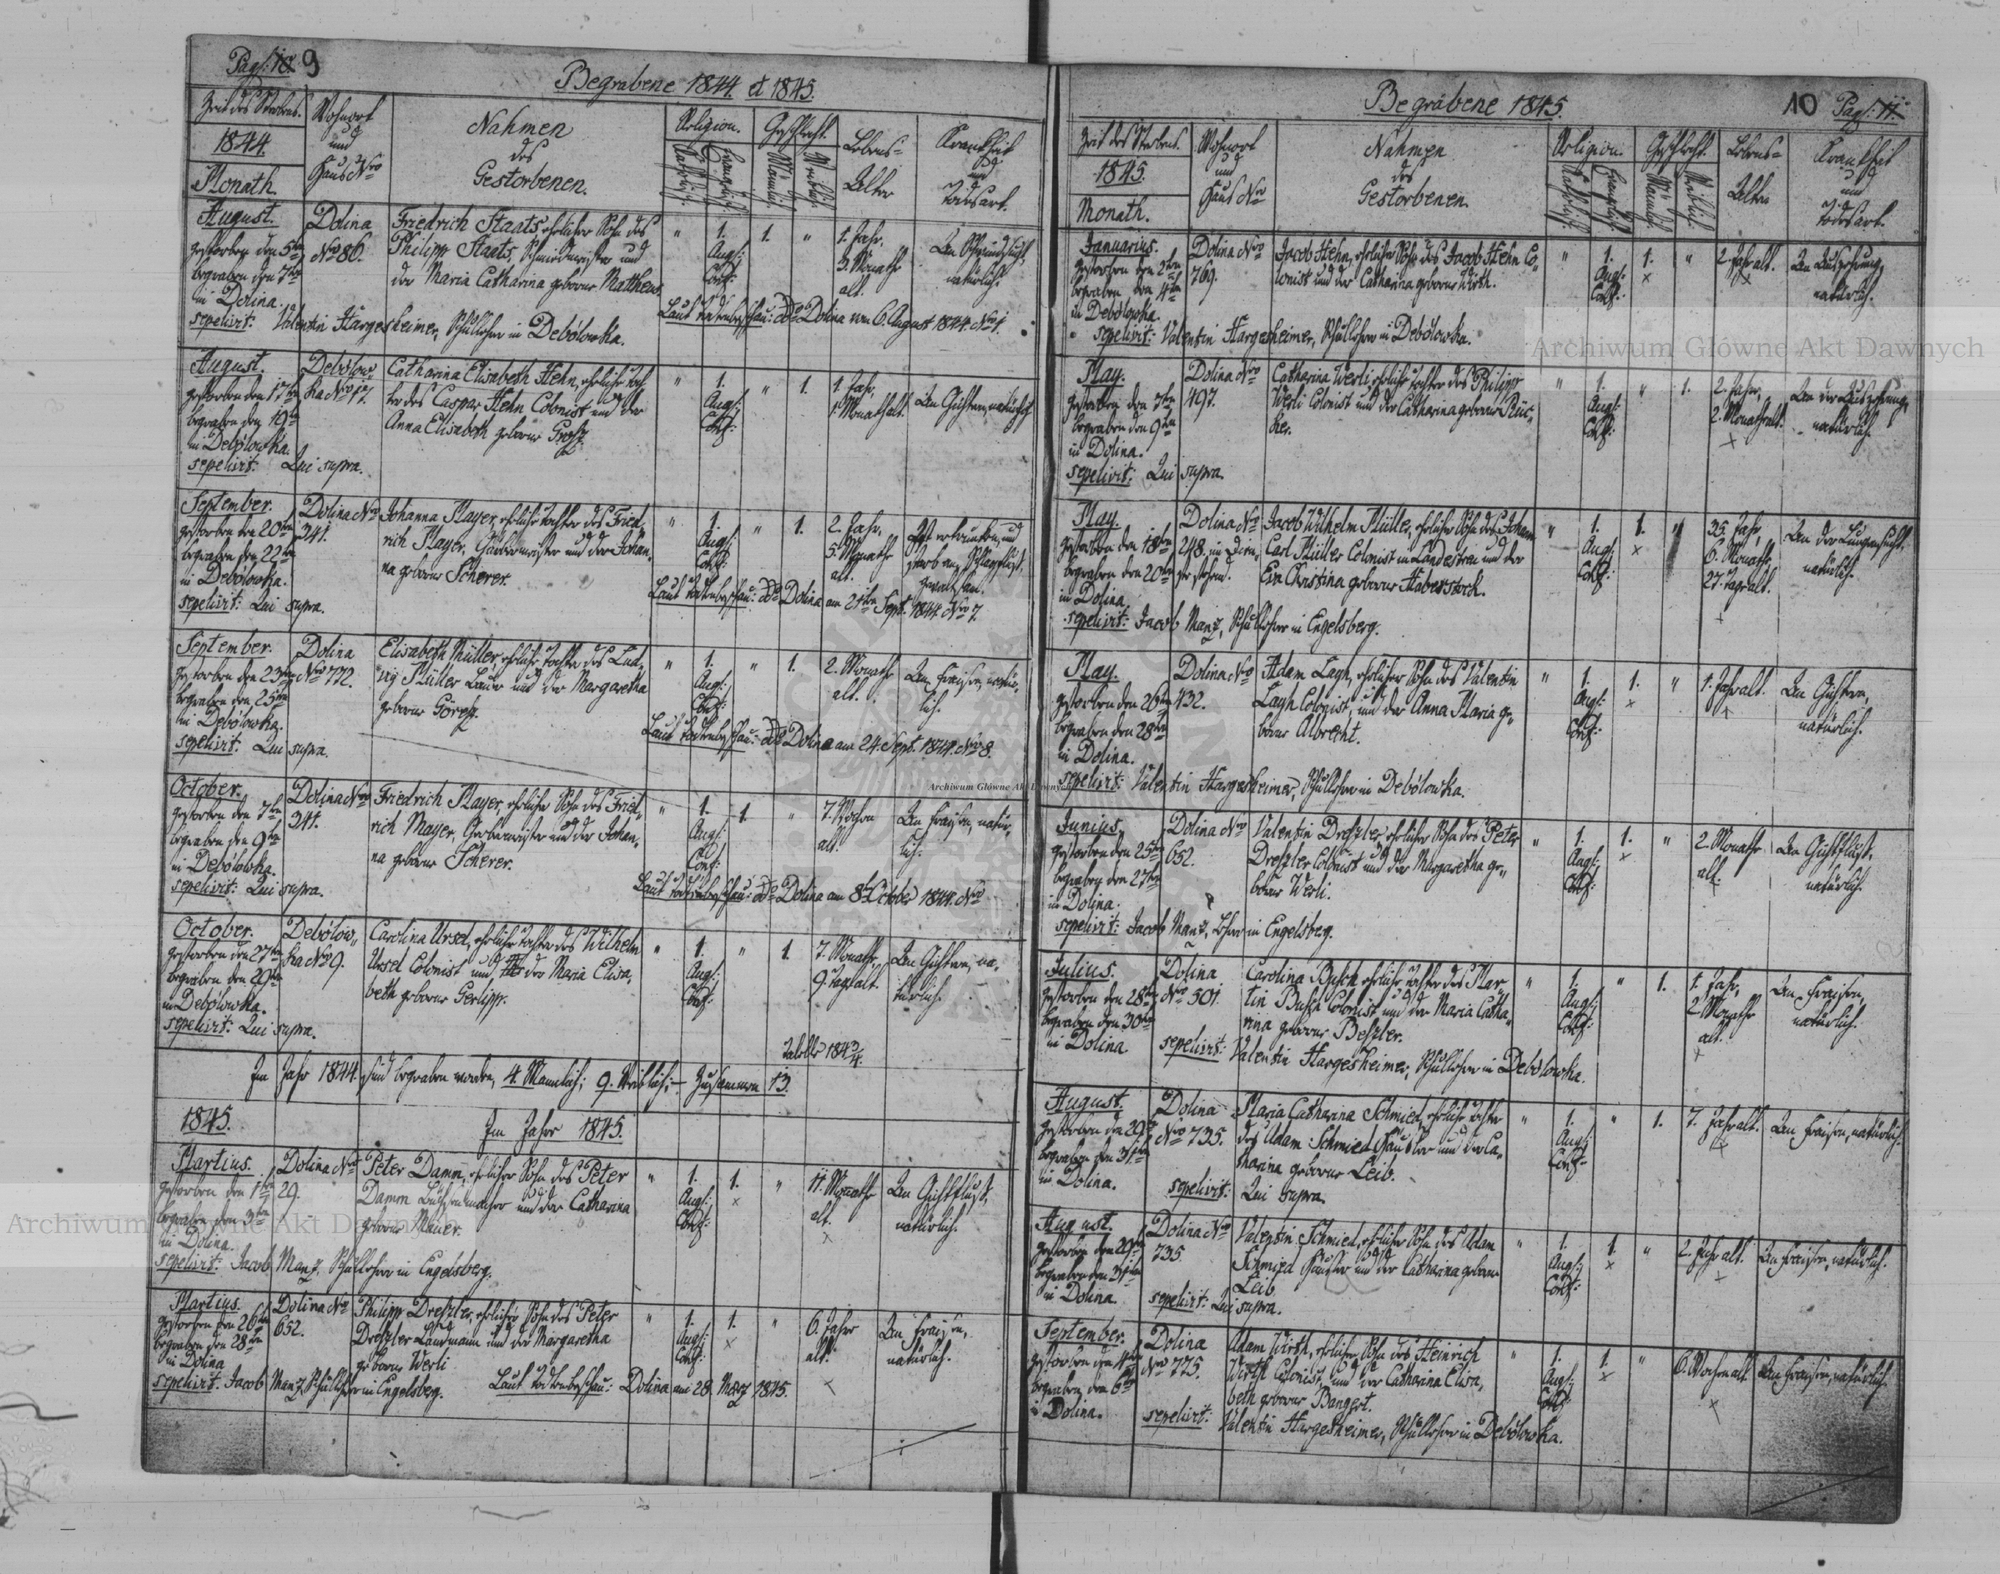 Pag: 10. 9
Begrabene 1844. et 1845.
Zeit des Sterbens.
1844.
Monath.
Wohnort
und
Haus Nro
Nahmen
des
Gestorbenen.
Religion.
Katholisch.
Evangelisch.
Geschlecht.
Männlich.
Weiblich.
Lebens-
Alter
Krankheit
und
Todesart.
August.
gestorben den 5ten
begraben den 7ten
in Dolina.
Dolina
Nro 86.
Friedrich Staats, ehelicher Sohn des
Philipp Staats, Schmiedmeister und
der Maria Catharina geborne Matheus.
" 1. 1. "
Augs:
Conf:
1. Jahr.
3. Monath
alt.
An Schwindsucht
natürlich.
Laut Todtenbeschau: ddo Dolina am 6. August 1844. No 1.
sepelivit: Valentin Hargesheimer, Schullehrer in Debolowka.
August.
gestorben den 17ten
begraben den 19ten
in Debolowka.
Debolow-
ka Nro 17.
Catharina Elisabeth Hehn, eheliche Toch-
ter des Caspar Hehn Colonist und der
Anna Elisabeth geborne Gross.
" 1. " 1.
Augs:
Conf:
1. Jahr,
1. Monath alt.
An Gichten, natürlich
sepelivit: Qui supra.
September.
gestorben den 20ten
begraben den 22ten
in Debolowka.
Dolina Nro
341.
Johanna Mayer, eheliche Tochter des Fried-
rich Mayer, Gärbermeister und der Johan-
na geborne Scherer.
" 1. " 1.
Augs:
Conf:
2. Jahr,
5. Monath
alt.
Ist ertrunken, und
starb am Schlagfluss.
gewaltsam.
Laut Todtenbeschau: ddo Dolina am 21ten Sept. 1844. Nro 7.
sepelivit: Qui supra.
September.
gestorben den 23ten
begraben den 25ten
in Debolowka.
Dolina
Nro 772.
Elisabeth Müller, eheliche Tochter des Lud-
wig Müller Bauer und der Margaretha
geborne Göres.
" 1. " 1.
Augs:
Conf:
2. Monath
alt.
An Fraisen, natür-
lich.
Laut Todtenbeschau: ddo Dolina am 24. Sept. 1844. Nro 8.
sepelivit: Qui supra.
October.
gestorben den 7ten
begraben den 9ten
in Debolowka.
Dolina Nro
341.
Friedrich Mayer, ehelicher Sohn des Fried-
rich Mayer, Gerbermeister und der Johan-
na geborne Scherer.
" 1. 1. "
Augs:
Conf:
7. Wochen
alt.
An Fraisen, natür-
lich.
Laut Todtenbeschau: ddo Dolina am 8. October 1844. Nro
sepelivit: Qui supra.
October.
gestorben den 27ten
begraben den 29ten
in Debolowka.
Debolow-
ka Nro 9.
Carolina Ursel, eheliche Tochter des Wilhelm
Ursel Colonist und der Maria Elisa-
beth geborne Gerlipp.
" 1. " 1.
Augs:
Conf:
7. Monath,
9. Tag alt.
An Gichten, na-
türlich.
sepelivit: Qui supra.
Tabelle 1843/4.
Im Jahr 1844. sind begraben worden, 4. Männlich; 9. Weiblich; - Zusammen 13.
1845. Im Jahr 1845.
Martius.
gestorben den 1ten
begraben den 3ten
in Dolina.
Dolina Nro
29.
Peter Damm, ehelicher Sohn des Peter
Damm und der Catharina
geborne Mauer.
" 1. 1. "
Augs:
Conf:
11. Monath
alt.
An Gichtfluss,
natürlich.
sepelivit: Jacob Manz, Schullehrer in Engelsberg.
Martius.
gestorben den 26ten
begraben den 28ten
in Dolina
Dolina Nro
652.
Philipp Dressler, ehelicher Sohn des Peter
Dressler Landmann und der Margaretha
geborne Werli
" 1. 1. "
Augs:
Conf:
6. Jahr
alt.
An Fraisen,
natürlich.
sepelivit: Jacob Manz, Schullehrer in Engelsberg. Laut Todtenbeschau: Dolina am 28. März 1845.
Begrabene 1845.
10 Pag: 11.
Zeit des Sterbens.
1845.
Monath.
Wohnort
und
Haus Nro
Nahmen
des
Gestorbenen.
Religion.
Katholisch.
Evangelisch.
Geschlecht.
Männlich.
Weiblich.
Lebens-
Alter
Krankheit
und
Todesart.
Januarius.
gestorben den 2ten
begraben den 4ten
in Debolowka.
Dolina Nro
769.
Jacob Hehn, ehelicher Sohn des Jacob Hehn Co-
lonist und der Catharina geborne Wirth.
" 1. 1. "
Augs:
Conf:
2. Jahr alt.
An Auszehrung,
natürlich.
sepelivit: Valentin Hargesheimer, Schullehrer in Debolowka.
May.
gestorben den 7ten
begraben den 9ten
in Dolina.
Dolina Nro
497.
Catharina Werli, eheliche Tochter des Philipp
Werli Colonist und der Catharina geborne Rüc-
ker.
" 1. " 1.
Augs:
Conf:
2. Jahr,
2. Monath alt.
An der Auszehrung,
natürlich.
sepelivit: Qui supra.
May.
gestorben den 18ten
begraben den 20ten
in Dolina
Dolina Nro
248.
Jacob Wilhelm Müller, ehelicher Sohn des Johann
Carl Müller Colonist in Landestreu und der
Eva Christina geborne Haberstock.
" 1. 1. "
Augs:
Conf:
35. Jahr,
6. Monath,
27. Tag alt.
An der Lungensucht,
natürlich.
sepelivit: Jacob Manz, Schullehrer in Engelsberg.
May.
gestorben den 26ten
begraben den 28ten
in Dolina.
Dolina Nro
432.
Adam Lagh, ehelicher Sohn des Valentin
Lagh Colonist, und der Anna Maria ge-
borne Albrecht.
" 1. 1. "
Augs:
Conf:
1. Jahr alt.
An Gichten,
natürlich.
sepelivit: Valentin Hargesheimer, Schullehrer in Debolowka.
Junius.
gestorben den 25ten
begraben den 27ten
in Dolina.
Dolina Nro
652.
Valentin Dressler, ehelicher Sohn des Peter
Dressler Colonist und der Margaretha ge-
borne Werli.
" 1. 1. "
Augs:
Conf:
2. Monath
alt.
An Gichtfluss,
natürlich.
sepelivit: Jacob Manz, Lehrer in Engelsberg.
Julius.
gestorben den 28ten
begraben den 30ten
in Dolina
Dolina
Nro 501.
Carolina Busch, eheliche Tochter des Mar-
tin Busch Colonist und der Maria Catha-
rina geborne Bessler.
" 1. " 1.
Augs:
Conf:
1. Jahr,
2. Monath
alt.
An Fraisen,
natürlich.
sepelivit: Valentin Hargesheimer, Schullehrer in Debolowka.
August.
gestorben den 29ten
begraben den 31ten
in Dolina.
Dolina
Nro 735.
Maria Catharina Schmied, eheliche Tochter
des Adam Schmied Häusler und der Ca-
tharina geborne Leib.
" 1. " 1.
Augs:
Conf:
7. Jahr alt.
An Fraisen, natürlich.
sepelivit: Qui supra.
August.
gestorben den 29ten
begraben den 31ten
in Dolina.
Dolina Nro
735.
Valentin Schmied, ehelicher Sohn des Adam
Schmied Häusler und der Catharina geborne
Leib
" 1. 1. "
Augs:
Conf:
2. Jahr alt.
An Fraisen, natürlich.
sepelivit: Qui supra.
September.
gestorben den 4ten
begraben den 6ten
in Dolina.
Dolina
Nro 775.
Adam Wirth, ehelicher Sohn des Heinrich
Wirth Colonist, und der Catharina Elisa-
beth geborne Bangert.
" 1. 1. "
Augs:
Conf:
6. Wochen alt.
An Fraisen, natürlich.
sepelivit: Valentin Hargesheimer, Schullehrer in Debolowka.
Archiwum Główne Akt Dawnych
Archiwum Główne Akt Dawnych
Archiwum Główne Akt Dawnych